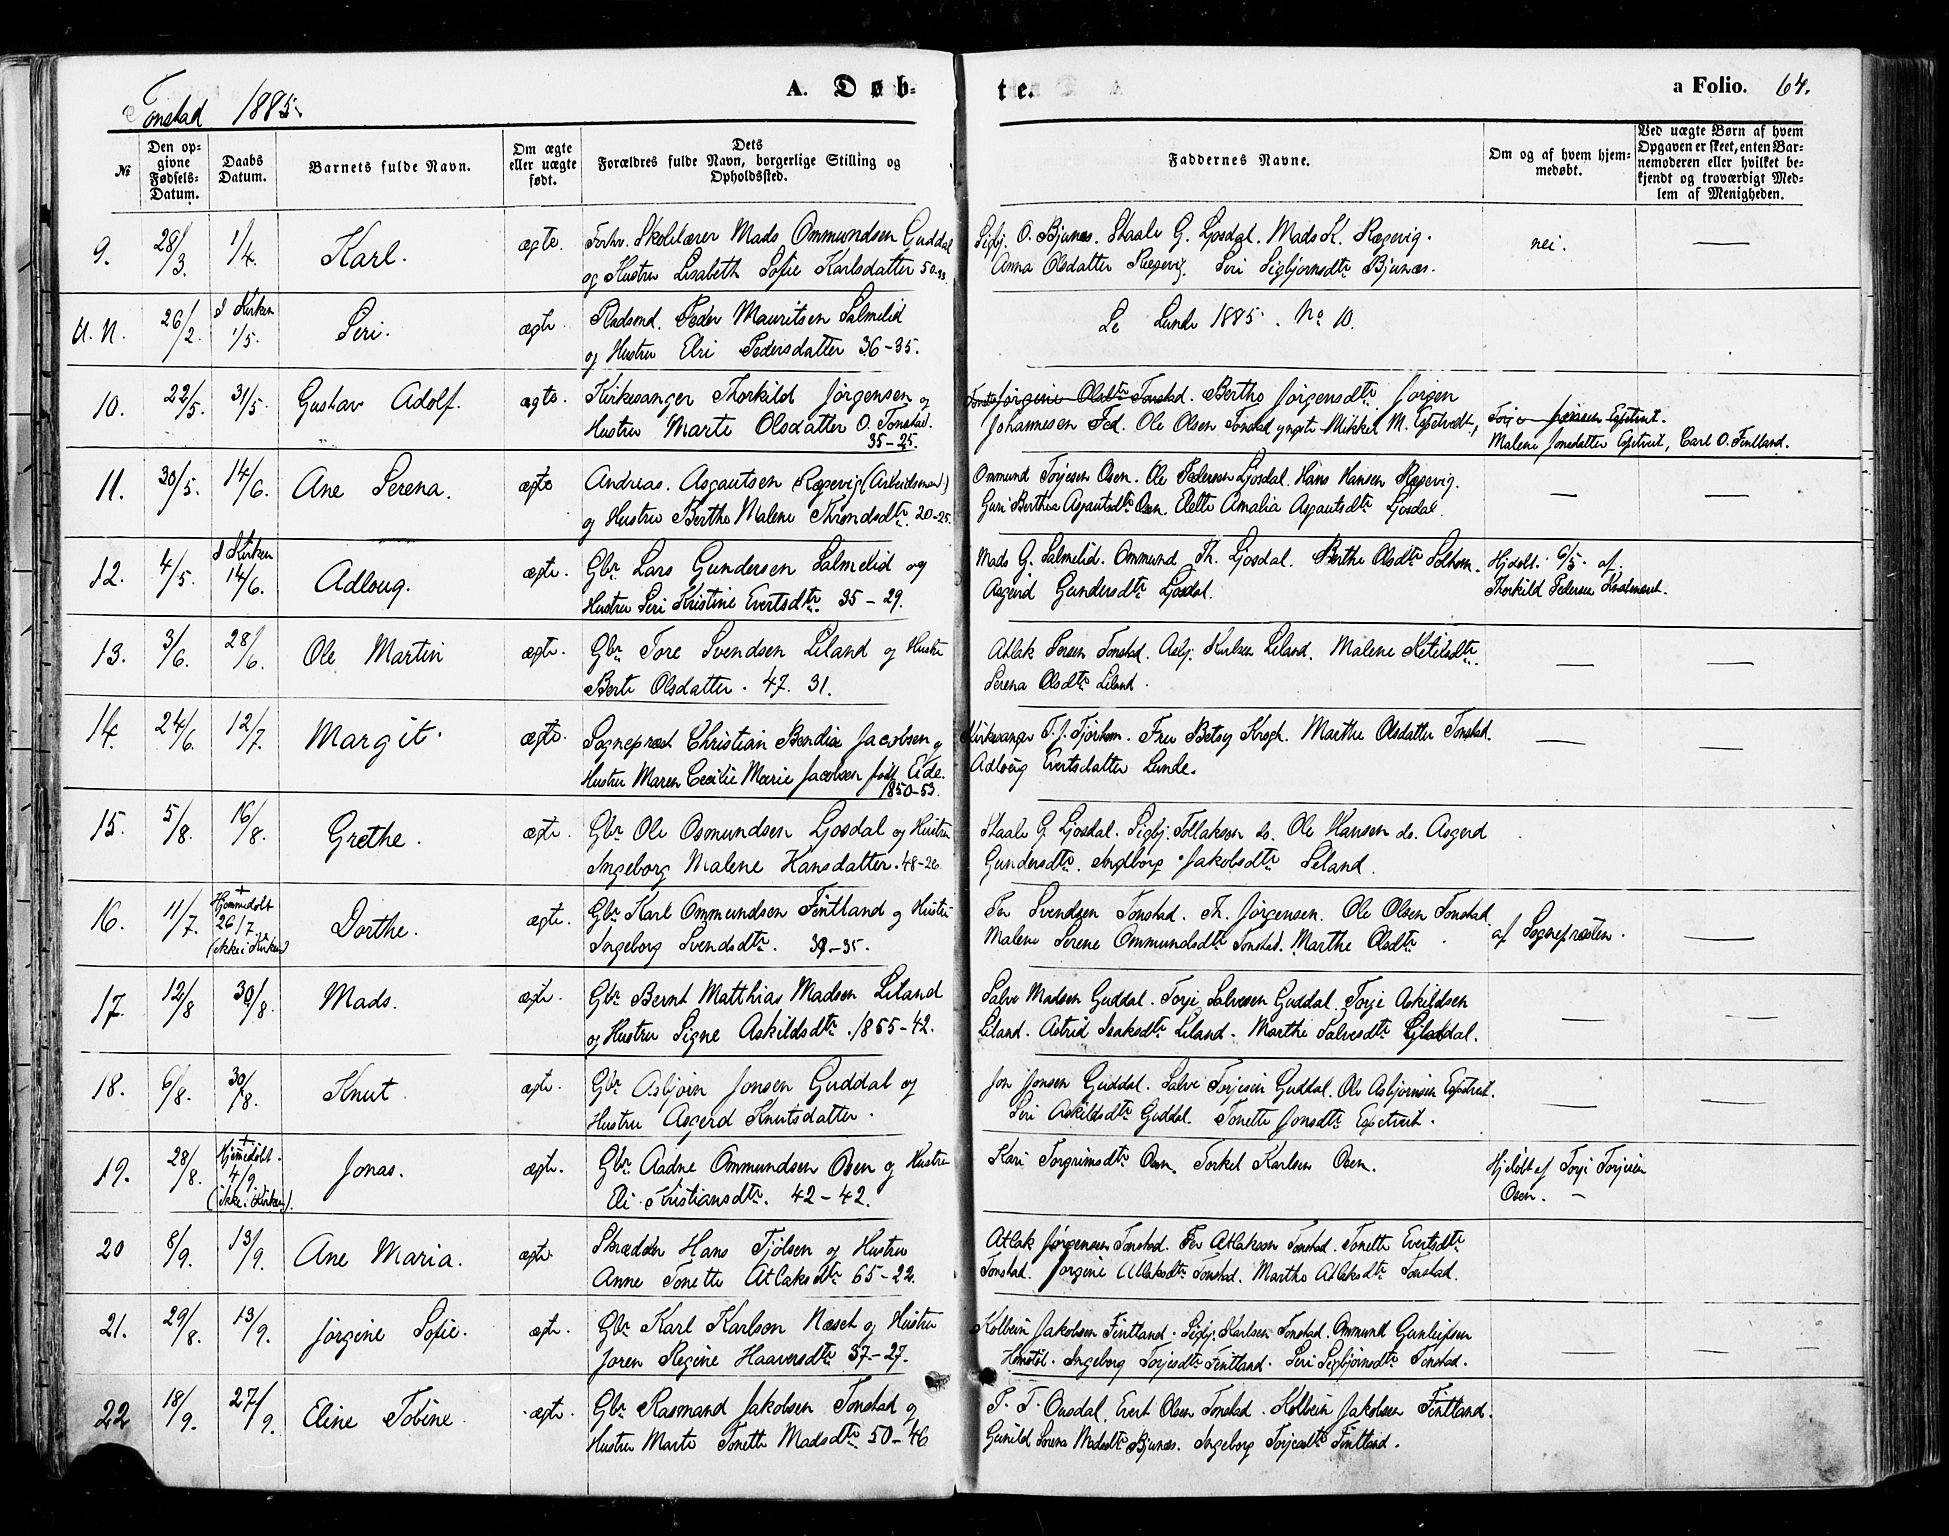 Tonstad 1885.
A. Døb-
te.
a Folio. 64.
№
Den op-
givne
Fødsels-
Datum.
Daabs
Datum.
Barnets fulde Navn.
Om ægte
eller uægte
født.
Dets
Forældres fulde Navn, borgerlige Stilling og
Opholdssted.
Faddernes Navne.
Om og af hvem hjem-
medøbt.
Ved uægte Børn af hvem
Opgaven er skeet, enten Bar-
nemoderen eller hvilket be-
kjendt og troværdigt Med-
lem af Menigheden.
9. 28/3. 1/4. Karl. ægte. Forhv. Skolelærer Mads Ommundsen Guddal
og Hustru Lisabeth Sofie Karlsdatter
Sigbj. O. Bjunes. Staale G. Ljosdal. Mads K. Røgevig.
Anna Olsdatter Røgevig. Seri Sigbjørnsdtr Bjunes.
nei. —
U. N. 26/2. I Kirken 1/5. Seri. ægte. Peder Mauritsen Salmelid
og Hustru Elri Pedersdatter 36-35.
Se Lunde 1885. No 10.
10. 22/5. 31/5. Gustav Adolf. ægte. Kirkesanger Thorkild Jørgensen og
Hustru Marte Olsdatter O. Tonstad.
35-25.
Jørgine Olsdtr Tonstad. Berthe Jørgensdtr Jørgen
Johannesen Fed. Ole Olsen Tonstad yngste Mikkel M. Egstvedt,
Malene Jonsdatter Egetveit, Carl O. Fintland.
11. 30/5. 14/6. Ane Serena. ægte Andreas. Asgautsen Røgevig (Arbeidsmand)
og Hustru Berthe Malene Throndsdtr. 20-25.
Ommund Torjesen Osen. Ole Pedersen Ljosdal. Hans Hansen Røgevig.
Guri Berthea Asgautsdtr Osen. Elette Amalia Asgautsdtr Ljosdal.
— —
12. 4/5. I Kirken 14/6. Adloug. ægte. Gbr. Lars Gundersen Salmelid og
Hustru Seri Kristine Evertsdtr. 35-29.
Mads G. Salmelid. Ommund Th. Ljosdal. Berthe Olsdtr Solhom.
Asgerd Gundersdtr Ljosdal.
Hjdøbt. 6/5. af.
Thorkild Pedersen
13. 3/6. 28/6. Ole Martin ægte. Gbr. Tore Svendsen Liland og Hustru
Berte Olsdatter. 47. 31.
Atlak Torsen Tonstad. Asbj. Karlsen Liland. Malene Ketilsdtr.
Serena Olsdtr Liland.
— —
14. 24/6. 12/7. Margit. ægte. Sogneprest Christian Bendix Jacobsen og
Hustru Maren Cecilie Marie Jacobsen født Eide.
1850-53.
Kirkesanger T. J. Fjørhom. Frue Betsy Krogh. Marthe Olsdatter Tonstad.
Adloug Evertsdatter Lunde.
— —
15. 5/8. 16/8. Grethe. ægte. Gbr Ole Osmundsen Ljosdal og Hustru
Ingeborg Malene Hansdatter. 48-26.
Staale G. Ljosdal. Sigbj. Tollaksen do. Ole Hansen do. Asgerd
Gundersdtr. Ingeborg Jakobsdtr Liland.
16. 11/7. + Hjemmedøbt 26/7. (ikke i Kirken) Dorthe. ægte. Gbr. Karl Ommundsen Fintland og Hustru
Ingeborg Svendsdtr. 39-35.
Per Svendsen Tonstad. Th. Jørgensen. Ole Olsen Tonstad.
Malene Serene Ommundsdtr Tonstad. Marthe Olsdtr
af Sognepræsten. —
17. 12/8 30/8. Mads. ægte. Gbr. Bernt Matthias Madsen Liland
og Hustru Signe Askildsdtr. 1855-42.
Salve Madsen Guddal. Torje Salvesen Guddal. Torje Askildsen
Liland. Astrid Isaksdtr Liland. Marthe Salvesdtr Guddal.
— —
18. 6/8. 30/8. Knut ægte. Gbr Asbjørn Jonsen Guddal og
Hustru Asgerd Knutsdatter.
Jon Jonsen Guddal. Salve Torjesen Guddal. Ole Asbjørnsen Egetveit.
Seri Askildsdtr Guddal. Tonette Jonsdtr Egetveit.
— —
19. 28/8. + Hjemmedøbt. 4/9. (ikke i Kirken). Jonas. ægte. Gbr. Aadne Ommundsen Osen og Hustru
Eli Kristiansdtr. 42-42.
Kari Torgrimsdtr Osen. Torkel Karlsen Osen.
Hjdøbt af Torje Torjesen
Osen. —
20 8/9. 13/9. Ane Maria. ægte. Skrædder Hans Tjølsen og Hustru
Anne Tonette Atlaksdtr 65-22.
Atlak Jørgensen Tonstad. Per Atlaksen Tonstad. Tonette Evertsdtr
Tonstad. Jørgine Atlaksdtr Tonstad. Marthe Atlaksdtr Tonstad.
21. 29/8. 13/9. Jørgine Sofie. ægte. Gbr Karl Karlson Næset og Hustru
Joren Regine Haaversdtr 37-27.
Kolbein Jakobsen Fintland. Sigbj. Karlsen Tonstad. Ommund Gunleifsen
Homstøl. Ingeborg Torjesdtr Fintland. Seri Sigbjørnsdtr Tonstad.
— — —
22 18/9. 27/9. Eline Tobine. ægte. Gbr Rasmund Jakobsen Tonstad og
Hustru Marte Tonette Madsdtr 50-46
T. T. Ousdal. Evert Olsen Tonstad. Kolbein Jakobsen Fintland.
Gunild Serena Madsdtr Bjunes. Ingeborg Torjesdtr Fintland.